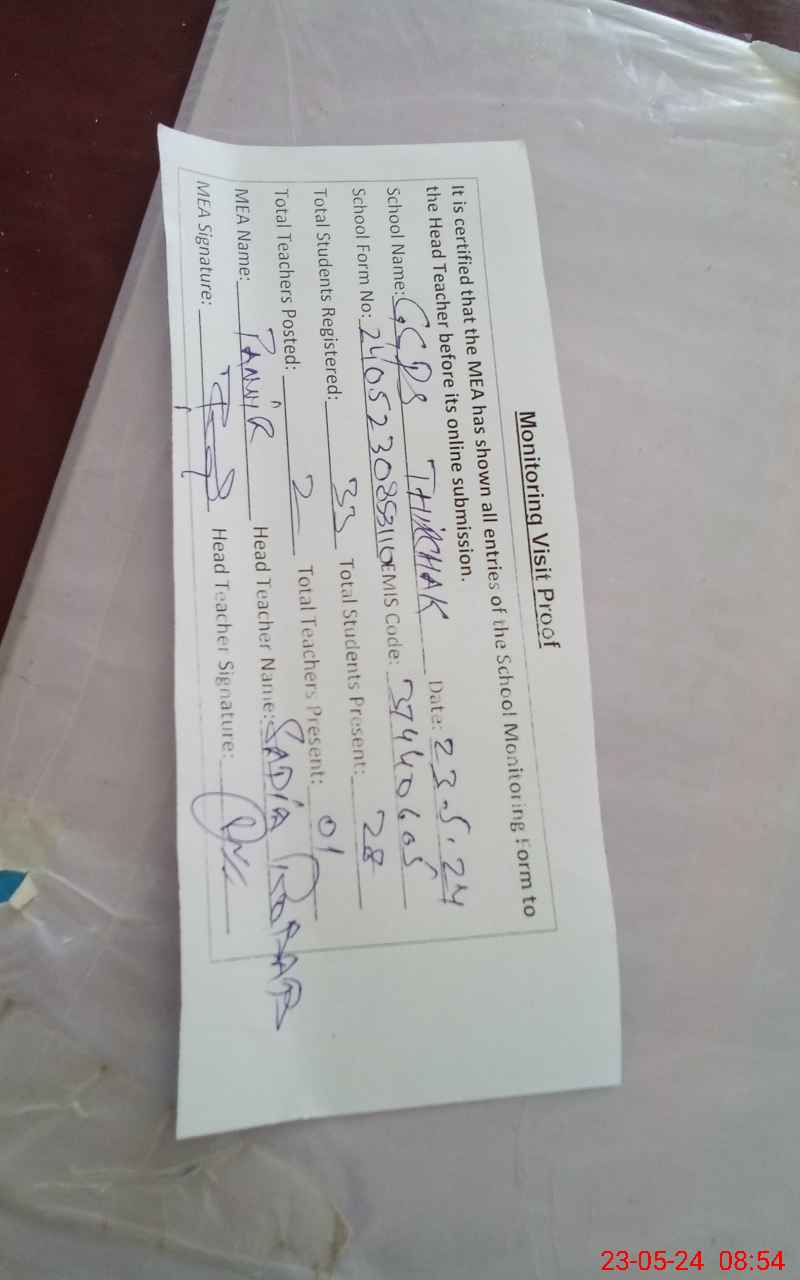 Monitoring Visit Proof
It is certified that the MEA has shown all entries of the School Monitoring Form to
the Head Teacher before its online submission.
School Name: GGPS THIRCHAK Date: 23.5.24
School Form No: EMIS Code: 37440605
Total Students Registered: 33 Total Students Present: 28
Total Teachers Posted: 2 Total Teachers Present: 01
MEA Name: TANVIR Head Teacher Name: SADIA
MEA Signature: Head Teacher Signature:
23-05-24 08:54